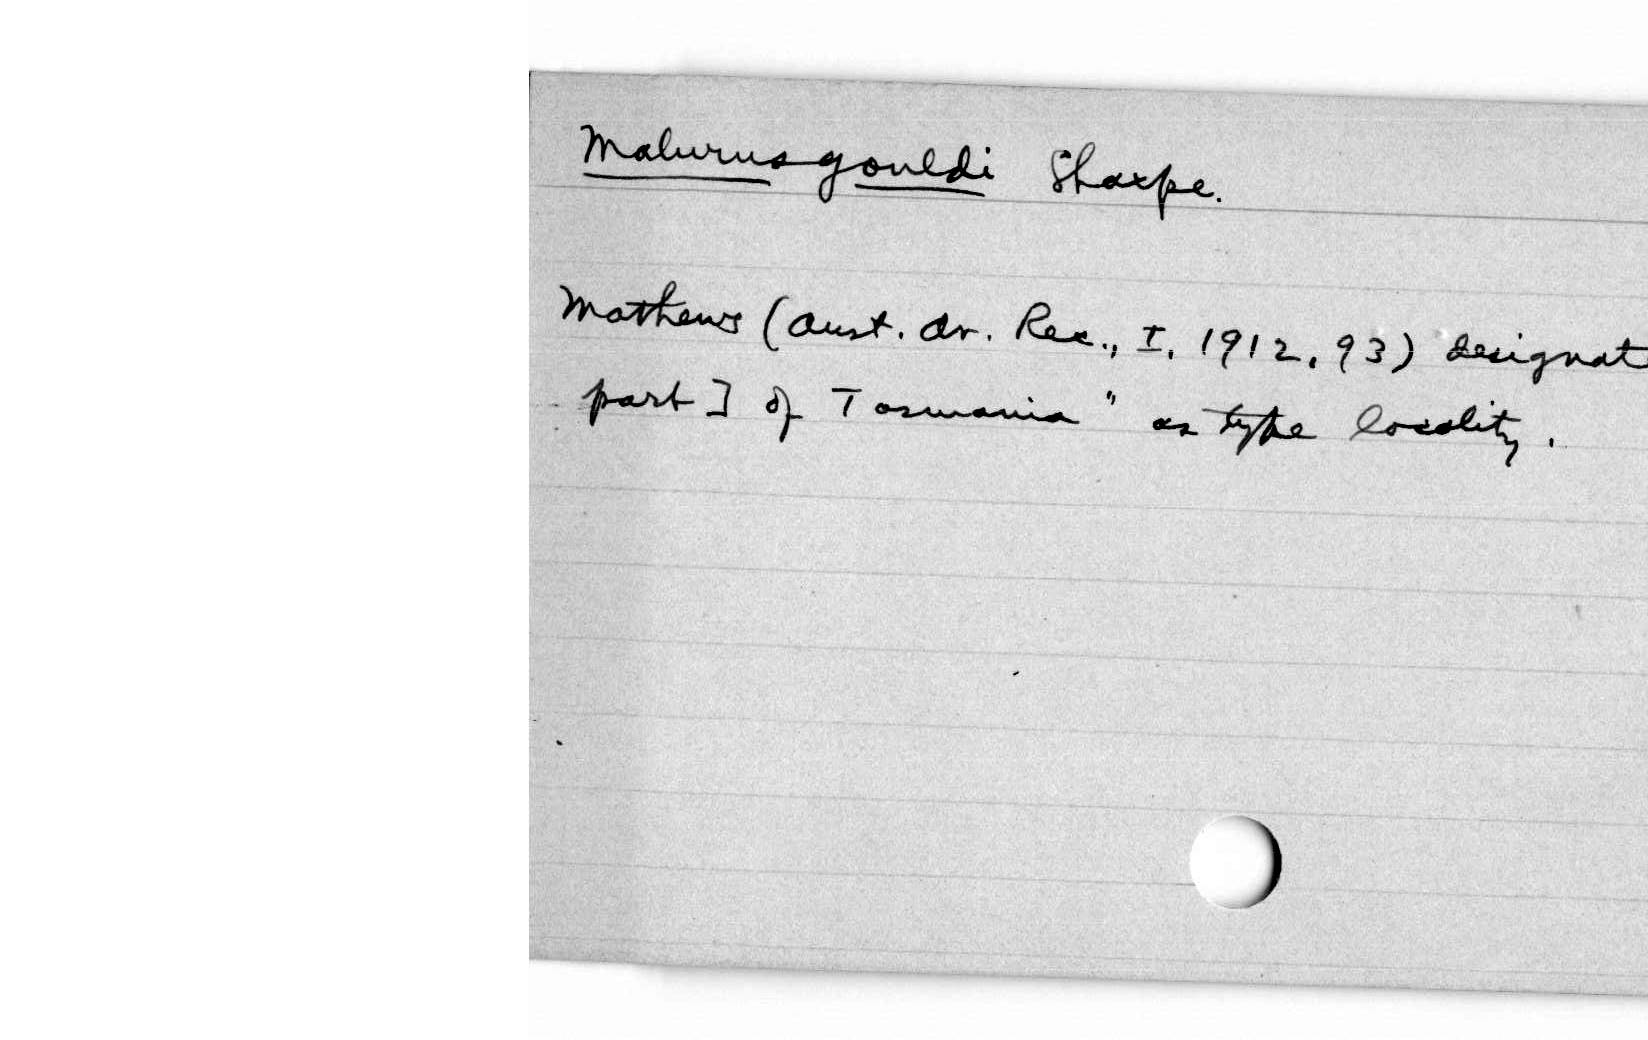 Malurus gouldi Sharpe.
Mathews (Aust. Av. Rec., I, 1912, 93) designat
part] of Tasmania" as type locality.